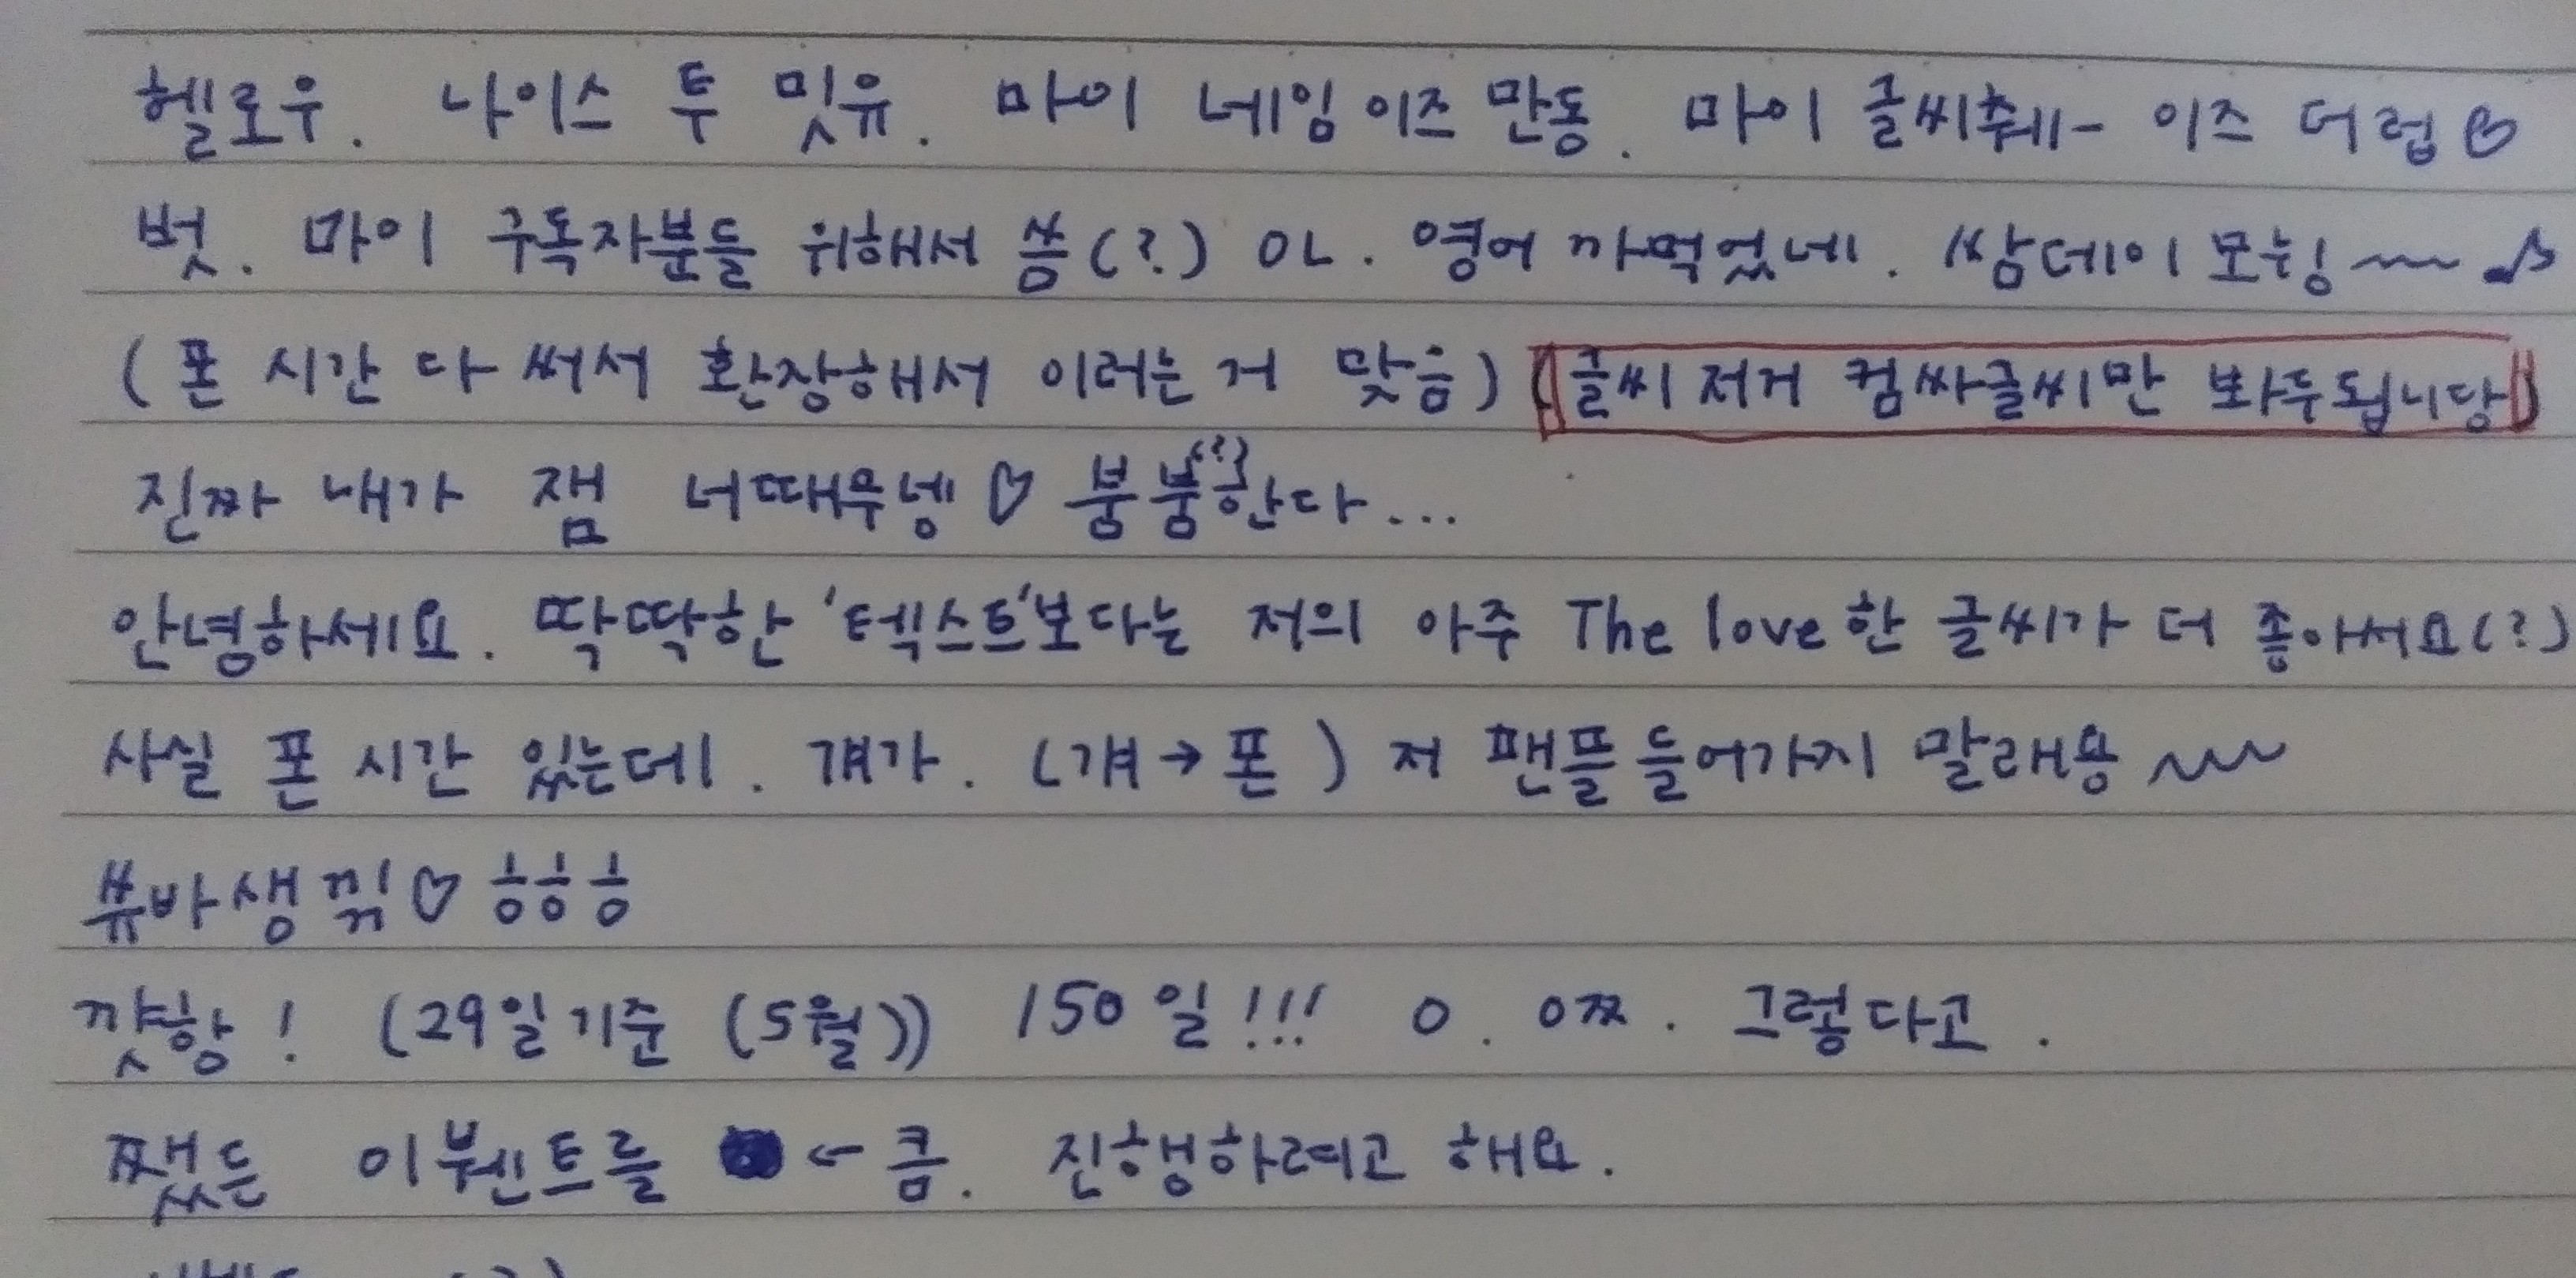 헬로우. 나이스 투 밋유. 마이 네임 이즈 만동. 마이 글씨췌- 이즈 더럽♡
벗. 마이 구독자분들 위해서 씀(?) 아. 영어 까먹었네. 쌈데이 모닝~~♪
(폰 시간 다 써서 환장해서 이러는 거 맞음) (글씨 저거 컴싸글씨만 봐두 됩니당)
진짜 내가 잼 너때무넹♡ 붕붕(?)한다...
안녕하세요. 딱딱한 '텍스트'보다는 저의 아주 The love한 글씨가 더 좋아서요(?)
사실 폰 시간 있는데. 걔가. (걔→폰) 저 팬플 들어가지 말래용~~
쓔바생끾♡ 흥흥흥
깟항! (29일기준 (5월)) 150일!!! ㅇ. ㅇㅉ. 그렇다고.
쨌든 이붼트를 ← 큼. 진행하려고 해요.